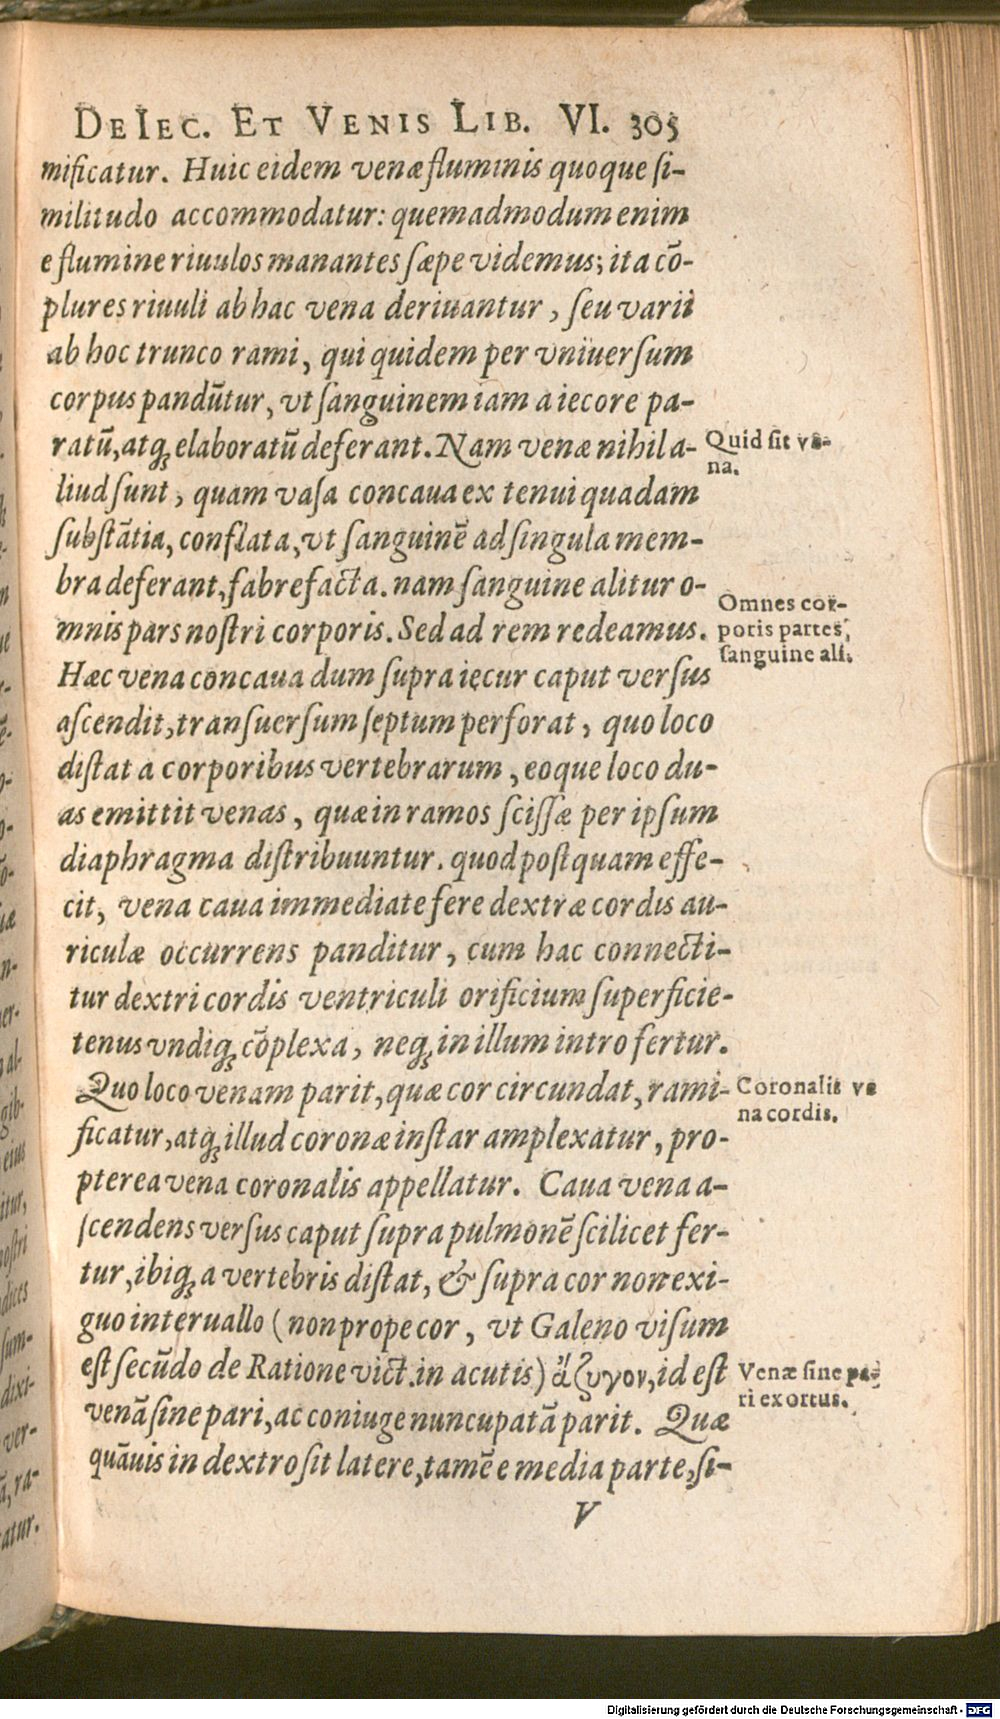 DE IEC. ET VENIS LIB. VI. 305
mificatur. Huic eidem venæ fluminis quoque ſi-
militudo accommodatur: quemadmodum enim
e flumine riuulos manantes ſæpe videmus; ita cō-
plures riuuli ab hac vena deriuantur, ſeu varii
ab hoc trunco rami, qui quidem per vniuerſum
corpus pandūtur, vt ſanguinem iam a iecore pa-
ratū, atq; elaboratū deferant. Nam venæ nihil a-
Quid ſit ve-
na.
liud ſunt, quam vaſa concaua ex tenui quadam
ſubſtātia, conflata, vt ſanguinē ad ſingula mem-
bra deferant, fabrefacta. nam ſanguine alitur o-
mnis pars noſtri corporis. Sed ad rem redeamus.
Omnes cor-
poris partes,
ſanguine ali.
Hæc vena concaua dum ſupra iecur caput verſus
aſcendit, tranſuerſum ſeptum perforat, quo loco
diſtat a corporibus vertebrarum, eoque loco du-
as emittit venas, quæ in ramos ſciſſæ per ipſum
diaphragma diſtribuuntur. quod poſtquam effe-
cit, vena caua immediate fere dextræ cordis au-
riculæ occurrens panditur, cum hac connecti-
tur dextri cordis ventriculi orificium ſuperficie-
tenus vndiq; cōplexa, neq; in illum intro fertur.
Quo loco venam parit, quæ cor circundat, rami-
Coronalis ve
na cordis.
ficatur, atq; illud coronæ inſtar amplexatur, pro-
pterea vena coronalis appellatur. Caua vena a-
ſcendens verſus caput ſupra pulmonē ſcilicet fer-
tur, ibiq; a vertebris diſtat, & ſupra cor non exi-
guo interuallo (non prope cor, vt Galeno viſum
eſt ſecūdo de Ratione vict. in acutis) ἄζυγον, id eſt
Venæ ſine pa-
ri exortus.
venā ſine pari, ac coniuge nuncupatā parit. Quæ
quāuis in dextro ſit latere, tamē e media parte, ſi-
V
Digitalisierung gefördert durch die Deutsche Forschungsgemeinschaft - DFG